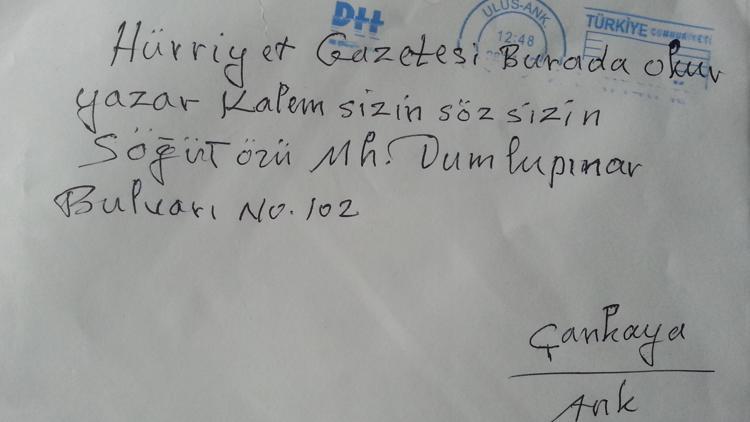 ptt
ULUS-ANK
12:48
TÜRKİYE CUMHURİYETİ
Hürriyet Gazetesi Burada okur
yazar Kalem sizin söz sizin
Söğütözü Mh. Dumlupınar
Bulvarı No. 102
Çankaya
Ank